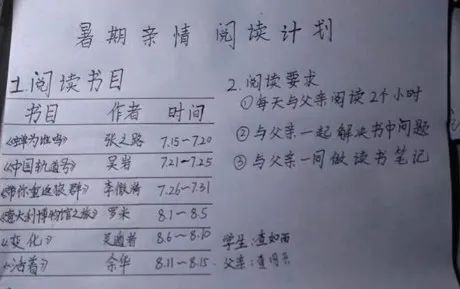 暑期亲情 阅读计划
1.阅读书目
书目 作者 时间
《蝉为谁鸣》 张之路 7.15~7.20
《中国轨道号》 吴岩 7.21~7.25
《带你重返狼群》 李微漪 7.26~7.31
《意大利博物馆之旅》 罗米 8.1~8.5
《变化》 8.6~8.10
《活着》 余华 8.11~8.15
2.阅读要求
①每天与父亲阅读2个小时
②与父亲一起解决书中问题
③与父亲一同做读书笔记
学生:查如西
父亲:查